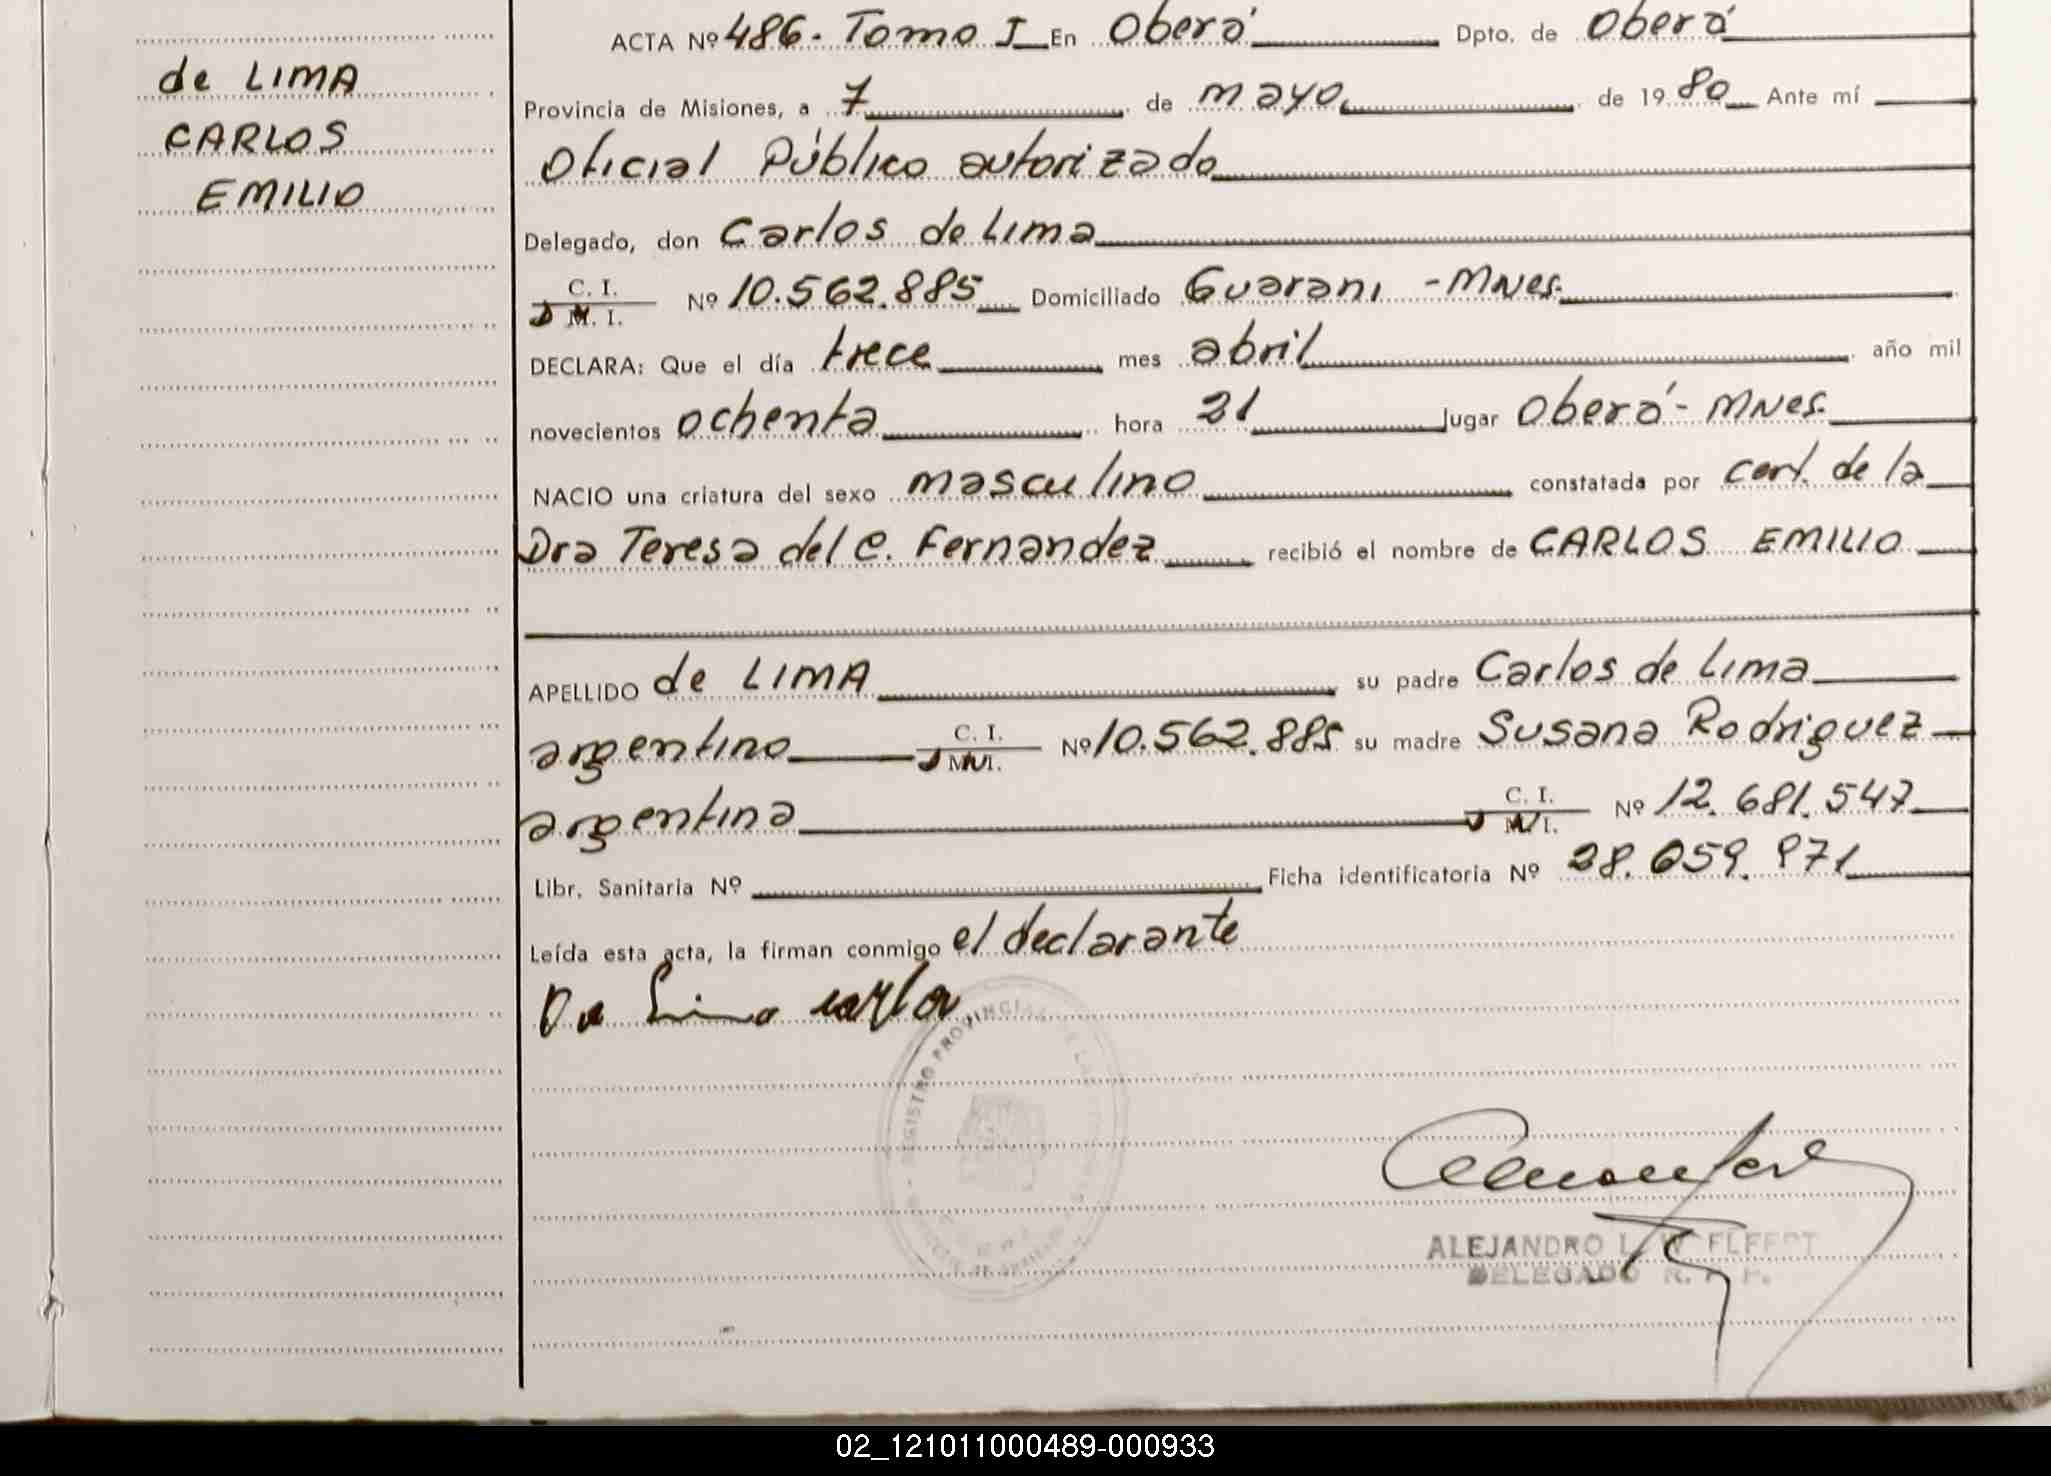 de LIMA
CARLOS
EMILIO
ACTA Nº 486. Tomo I En Oberá Dpto. de Oberá
Provincia de Misiones, a 7 de mayo de 1980 Ante mí
Oficial Público autorizado
Delegado, don Carlos de Lima
C. I.
D M. I. Nº 10.562.885 Domiciliado Guarani - MNes.
DECLARA: Que el día trece mes abril año mil
novecientos ochenta hora 21 lugar Oberá - MNes.
NACIO una criatura del sexo masculino constatada por cert. de la
Dra Teresa del C. Fernandez recibió el nombre de CARLOS EMILIO
APELLIDO de LIMA su padre Carlos de Lima
argentino C. I. Nº 10.562.885 su madre Susana Rodriguez
argentina C. I. Nº 12.681.547
Libr. Sanitaria Nº Ficha identificatoria Nº 28.059.971
Leída esta acta, la firman conmigo el declarante
De Lima Carlos
REGISTRO PROVINCIAL
ALEJANDRO L.
DELEGADO R. P. P.
02_121011000489-000933